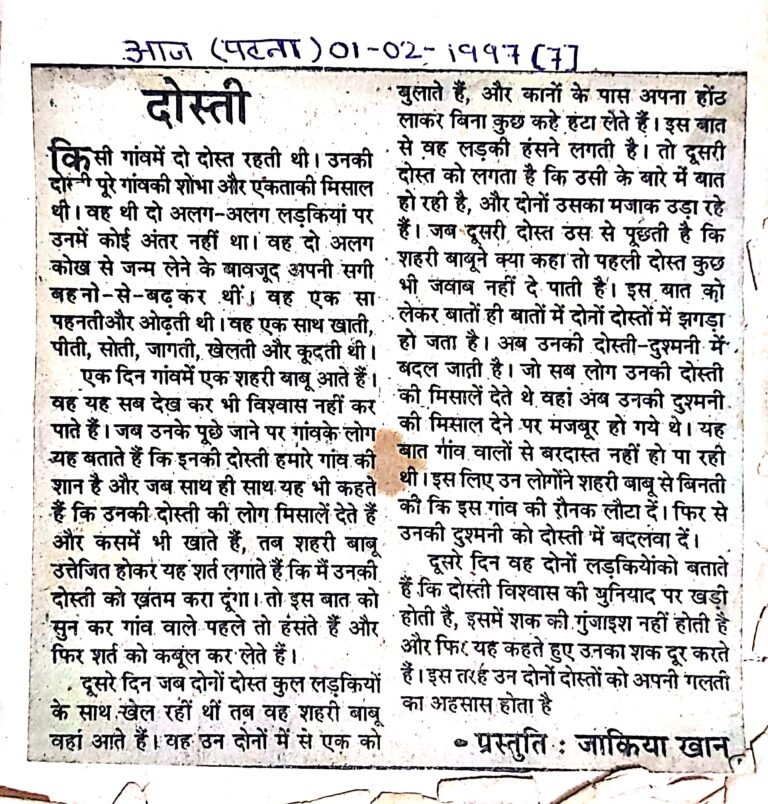 आज (पटना) 01-02-1997 [7]
दोस्ती
किसी गांवमें दो दोस्त रहती थी। उनकी
दोस्ती पूरे गांवकी शोभा और एकताकी मिसाल
थी। वह थी दो अलग-अलग लड़कियां पर
उनमें कोई अंतर नहीं था। वह दो अलग
कोख से जन्म लेने के बावजूद अपनी सगी
बहनो-से-बढ़कर थीं। वह एक सा
पहनतीऔर ओढ़ती थी। वह एक साथ खाती,
पीती, सोती, जागती, खेलती और कूदती थी।
एक दिन गांवमें एक शहरी बाबू आते हैं।
वह यह सब देख कर भी विश्वास नहीं कर
पाते हैं। जब उनके पूछे जाने पर गांवके लोग
यह बताते हैं कि इनकी दोस्ती हमारे गांव की
शान है और जब साथ ही साथ यह भी कहते
हैं कि उनकी दोस्ती की लोग मिसालें देते हैं
और कसमें भी खाते हैं, तब शहरी बाबू
उत्तेजित होकर यह शर्त लगाते हैं कि मैं उनकी
दोस्ती को खतम करा दूंगा। तो इस बात को
सुन कर गांव वाले पहले तो हंसते हैं और
फिर शर्त को कबूल कर लेते हैं।
दूसरे दिन जब दोनों दोस्त कुल लड़कियों
के साथ खेल रहीं थीं तब वह शहरी बाबू
वहां आते हैं। वह उन दोनों में से एक को
बुलाते हैं, और कानों के पास अपना होंठ
लाकर बिना कुछ कहे हटा लेते हैं। इस बात
से वह लड़की हंसने लगती है। तो दूसरी
दोस्त को लगता है कि उसी के बारे में बात
हो रही है, और दोनों उसका मजाक उड़ा रहे
हैं। जब दूसरी दोस्त उस से पूछती है कि
शहरी बाबूने क्या कहा तो पहली दोस्त कुछ
भी जवाब नहीं दे पाती है। इस बात को
लेकर बातों ही बातों में दोनों दोस्तों में झगड़ा
हो जता है। अब उनकी दोस्ती-दुश्मनी में
बदल जाती है। जो सब लोग उनकी दोस्ती
की मिसालें देते थे वहां अब उनकी दुश्मनी
की मिसाल देने पर मजबूर हो गये थे। यह
बात गांव वालों से बरदास्त नहीं हो पा रही
थी। इस लिए उन लोगोंने शहरी बाबू से बिनती
की कि इस गांव की रौनक लौटा दें। फिर से
उनकी दुश्मनी को दोस्ती में बदलवा दें।
दूसरे दिन वह दोनों लड़कियोंको बताते
हैं कि दोस्ती विश्वास की बुनियाद पर खड़ी
होती है, इसमें शक की गुंजाइश नहीं होती है
और फिर यह कहते हुए उनका शक दूर करते
हैं। इस तरह उन दोनों दोस्तों को अपनी गलती
का अहसास होता है
• प्रस्तुति : जाकिया खान